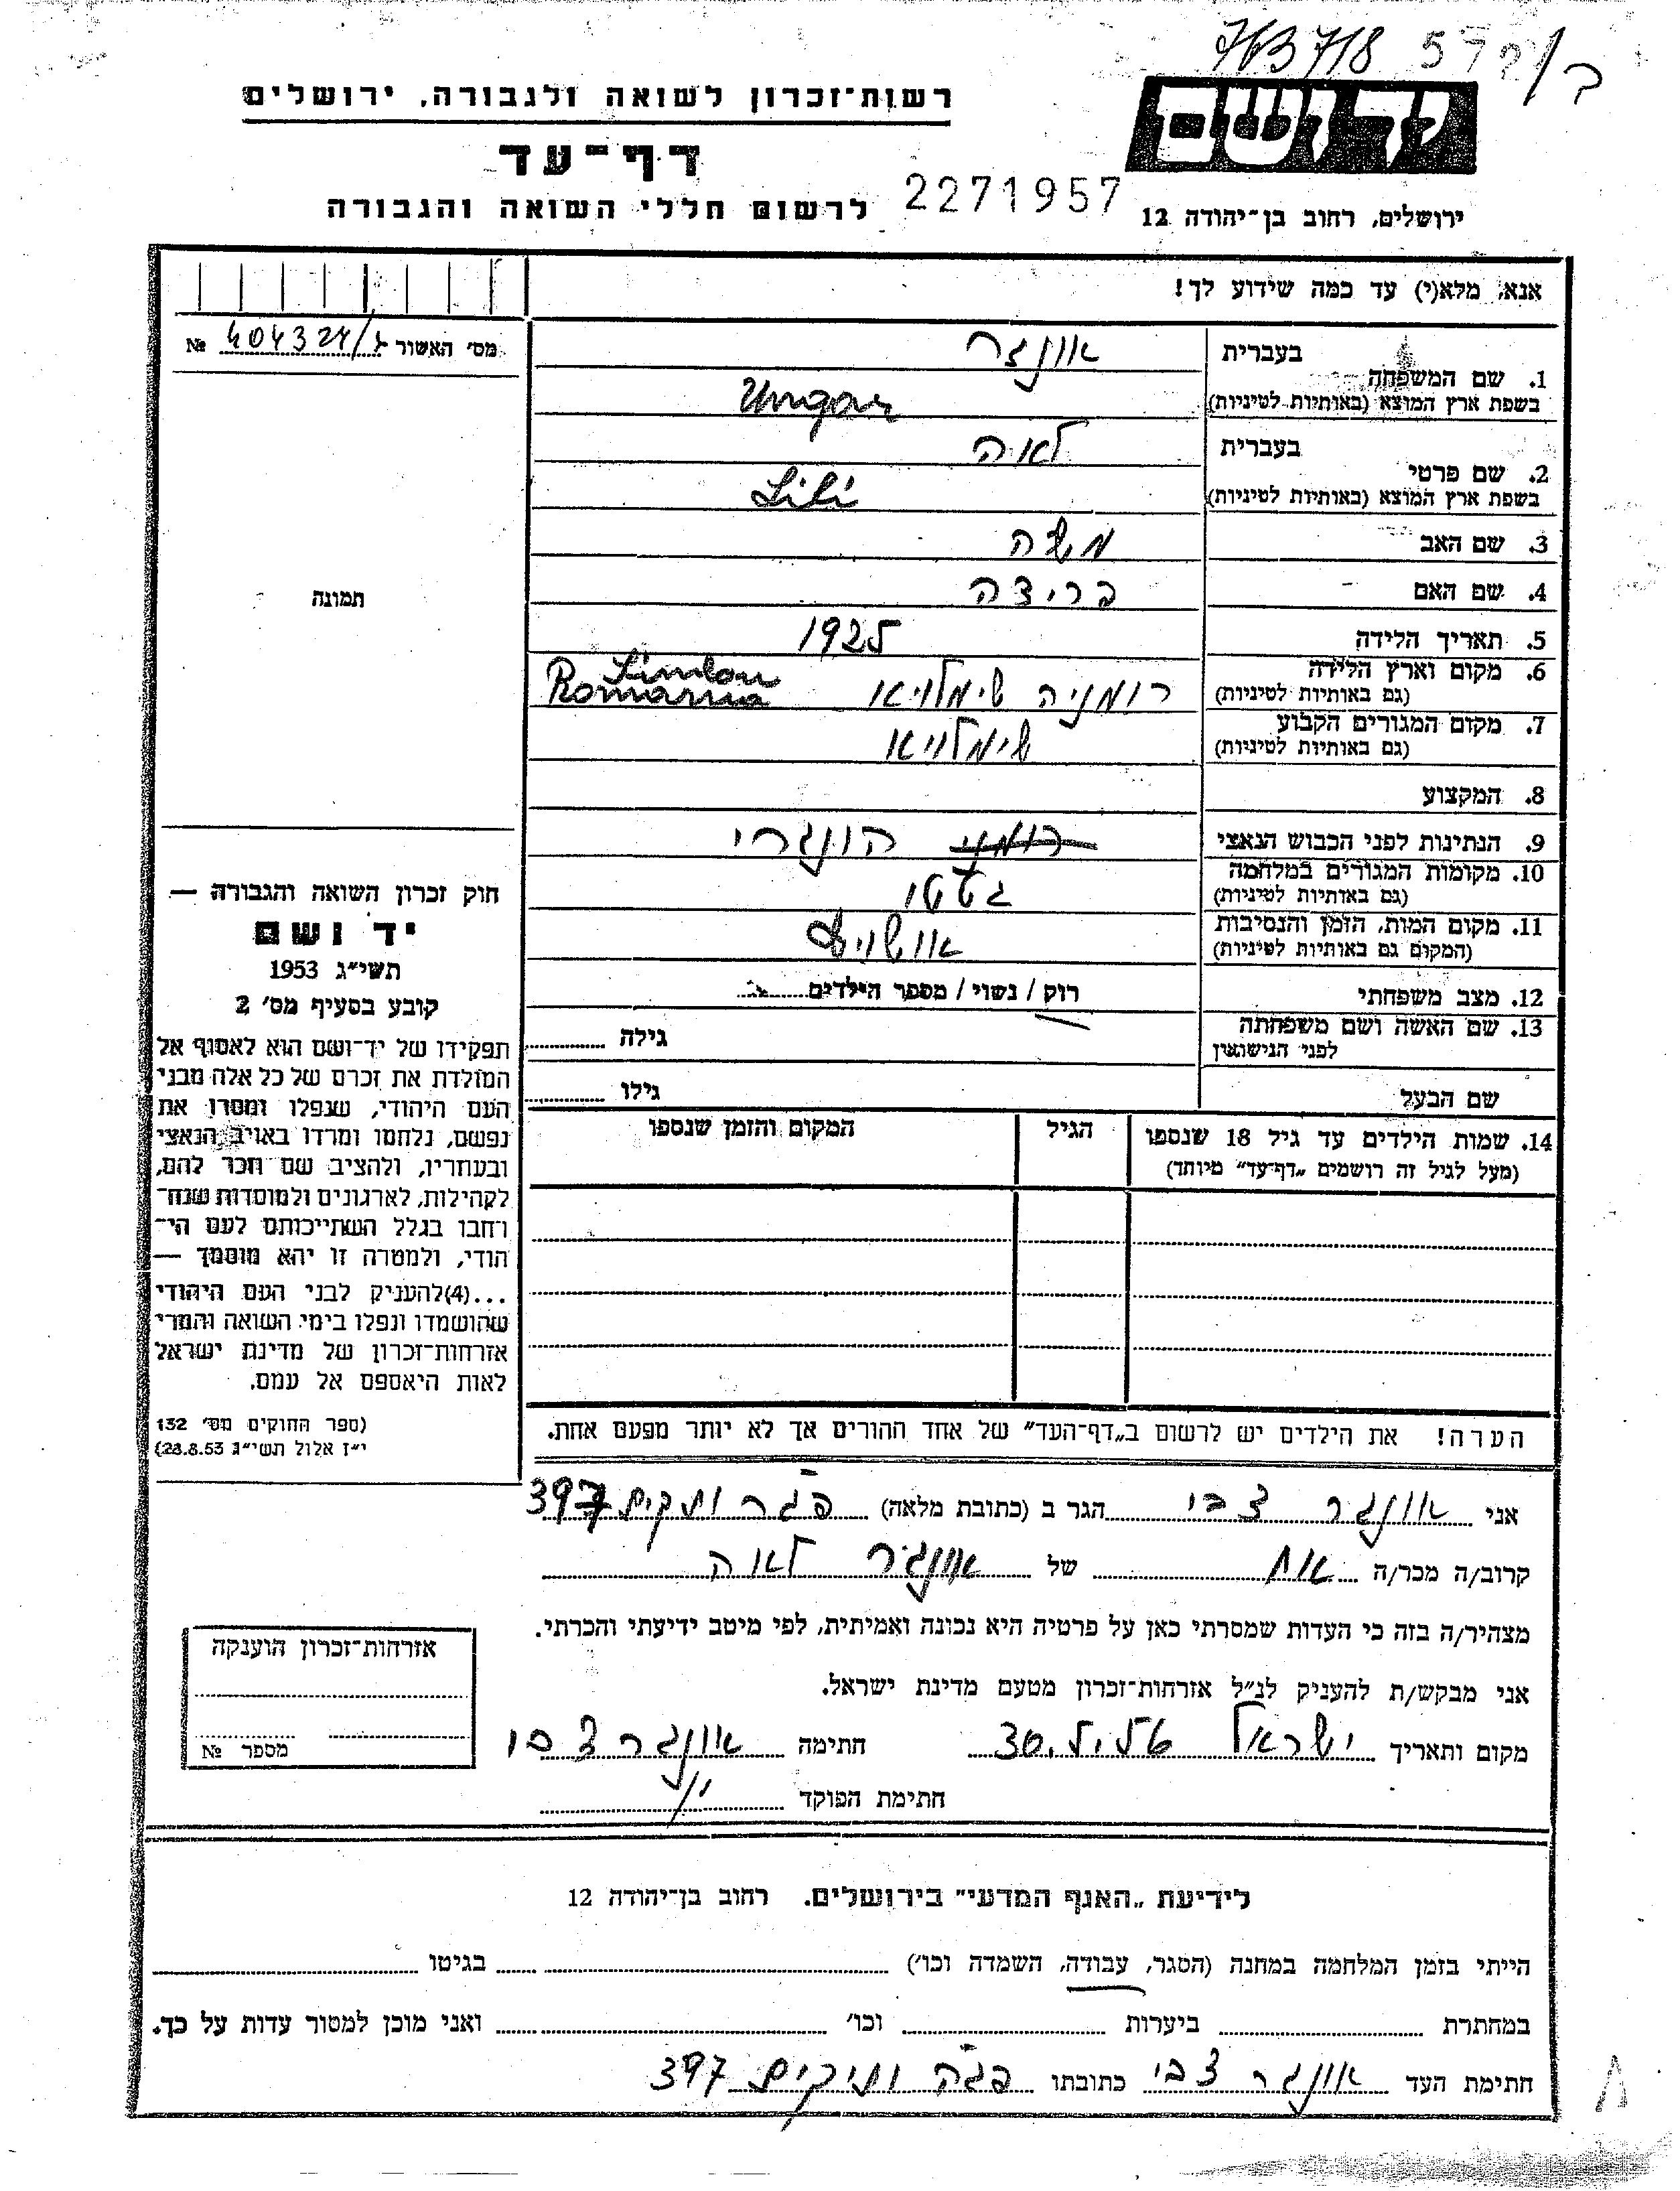 763718 572/ב
רשות־זכרון לשואה ולגבורה, ירושלים
יד ושם
דף־עד
לרשום חללי השואה והגבורה
2271957
ירושלים, רחוב בן־יהודה 12
אנא, מלא(י) עד כמה שידוע לך!
מס' האשור 404324/ג №
1. שם המשפחה בעברית אונגר
בשפת ארץ המוצא (באותיות לטיניות) Ungar
2. שם פרטי בעברית לאה
בשפת ארץ המוצא (באותיות לטיניות) Lili
3. שם האב משה
4. שם האם
5. תאריך הלידה 1925
6. מקום וארץ הלידה (גם באותיות לטיניות) רומניה שימלויאו Romania
7. מקום המגורים הקבוע (גם באותיות לטיניות) שימלויאו
8. המקצוע
9. הנתינות לפני הכבוש הנאצי רומני הונגרי
10. מקומות המגורים במלחמה (גם באותיות לטיניות) גטטו
11. מקום המות, הזמן והנסיבות (המקום גם באותיות לטיניות) אושויץ
12. מצב משפחתי רוק / נשוי / מספר הילדים
13. שם האשה ושם משפחתה לפני הנישואין גילה
שם הבעל גילו
14. שמות הילדים עד גיל 18 שנספו הגיל המקום והזמן שנספו
(מעל לגיל זה רושמים „דף־עד" מיוחד)
הערה! את הילדים יש לרשום ב„דף־העד" של אחד ההורים אך לא יותר מפעם אחת.
תמונה
חוק זכרון השואה והגבורה —
יד ושם
תשי"ג 1953
קובע בסעיף מס' 2
תפקידו של יד־ושם הוא לאסוף אל
המולדת את זכרם של כל אלה מבני
העם היהודי, שנפלו ומסרו את
נפשם, נלחמו ומרדו באויב הנאצי
ובעוזריו, ולהציב שם וזכר להם,
לקהילות, לארגונים ולמוסדות שנח־
רחבו בגלל השתייכותם לעם הי־
הודי, ולמטרה זו יהא מוסמך —
...(4)להעניק לבני העם היהודי
שהושמדו ונפלו בימי השואה והמרי
אזרחות־זכרון של מדינת ישראל
לאות היאספם אל עמם.
(ספר החוקים מס' 132
י"ז אלול תשי"ג 28.8.53)
אני אונגר צבי הגר ב (כתובת מלאה) ותקים 397
קרוב/ה מכר/ה אח של אונגר לאה
מצהיר/ה בזה כי העדות שמסרתי כאן על פרטיה היא נכונה ואמיתית, לפי מיטב ידיעתי והכרתי.
אני מבקש/ת להעניק לנ"ל אזרחות־זכרון מטעם מדינת ישראל.
מקום ותאריך ישראל חתימה אונגר צבי
חתימת הפוקד
אזרחות־זכרון הוענקה
מספר №
לידיעת „האגף המדעי" בירושלים. רחוב בן־יהודה 12
הייתי בזמן המלחמה במחנה (הסגר, עבודה, השמדה וכו') בגיטו
במחתרת ביערות וכו' ואני מוכן למסור עדות על כך.
חתימת העד אונגר צבי כתובתו ותיקים 397